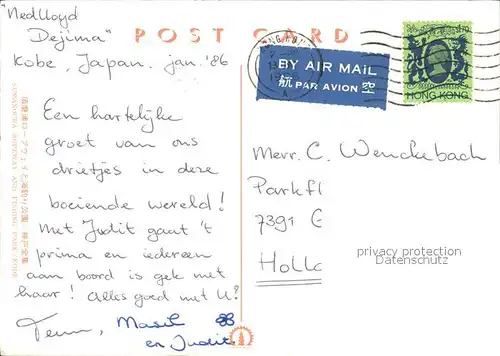 "Nedlloyd
Dejima"
Kobe, Japan. jan. '86
POST CARD
BY AIR MAIL
航 PAR AVION 空
HONG KONG
Een hartelijke
groet van ons
drietjes in deze
boeiende wereld!
Met Judit gaat 't
prima en iedereen
aan boord is gek met
haar! Alles goed met U?
Teun, Masil
en Judit.
Mevr. C. Wenckebach
Parkfl
7391 G
Holla
privacy protection
Datenschutz
須磨浦ロープウェイと海釣り公園 神戸全集
SUMANOURA ROPEWAY AND FISHING PARK KOBE